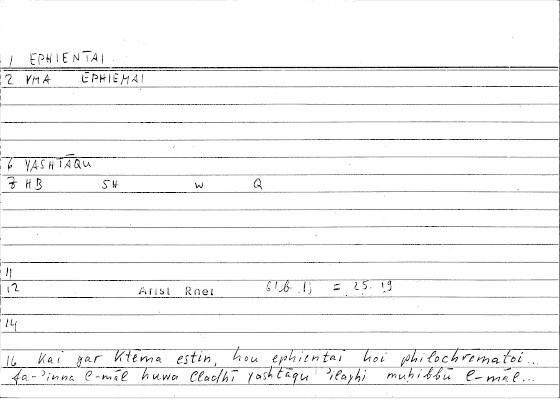 1 EPHIENTAI
2 VMA EPHIEMAI
6 YASHTĀQU
7 HB SH W Q
11
12 Arist Rhet 61b 1j = 25.19
14
16 Kai gar Ktēma estin, hou ephientai hoi philochrēmatoi...
fa-'inna l-māl huwa lladhī yashtāqu 'ilayhi muhibbū l-māl...